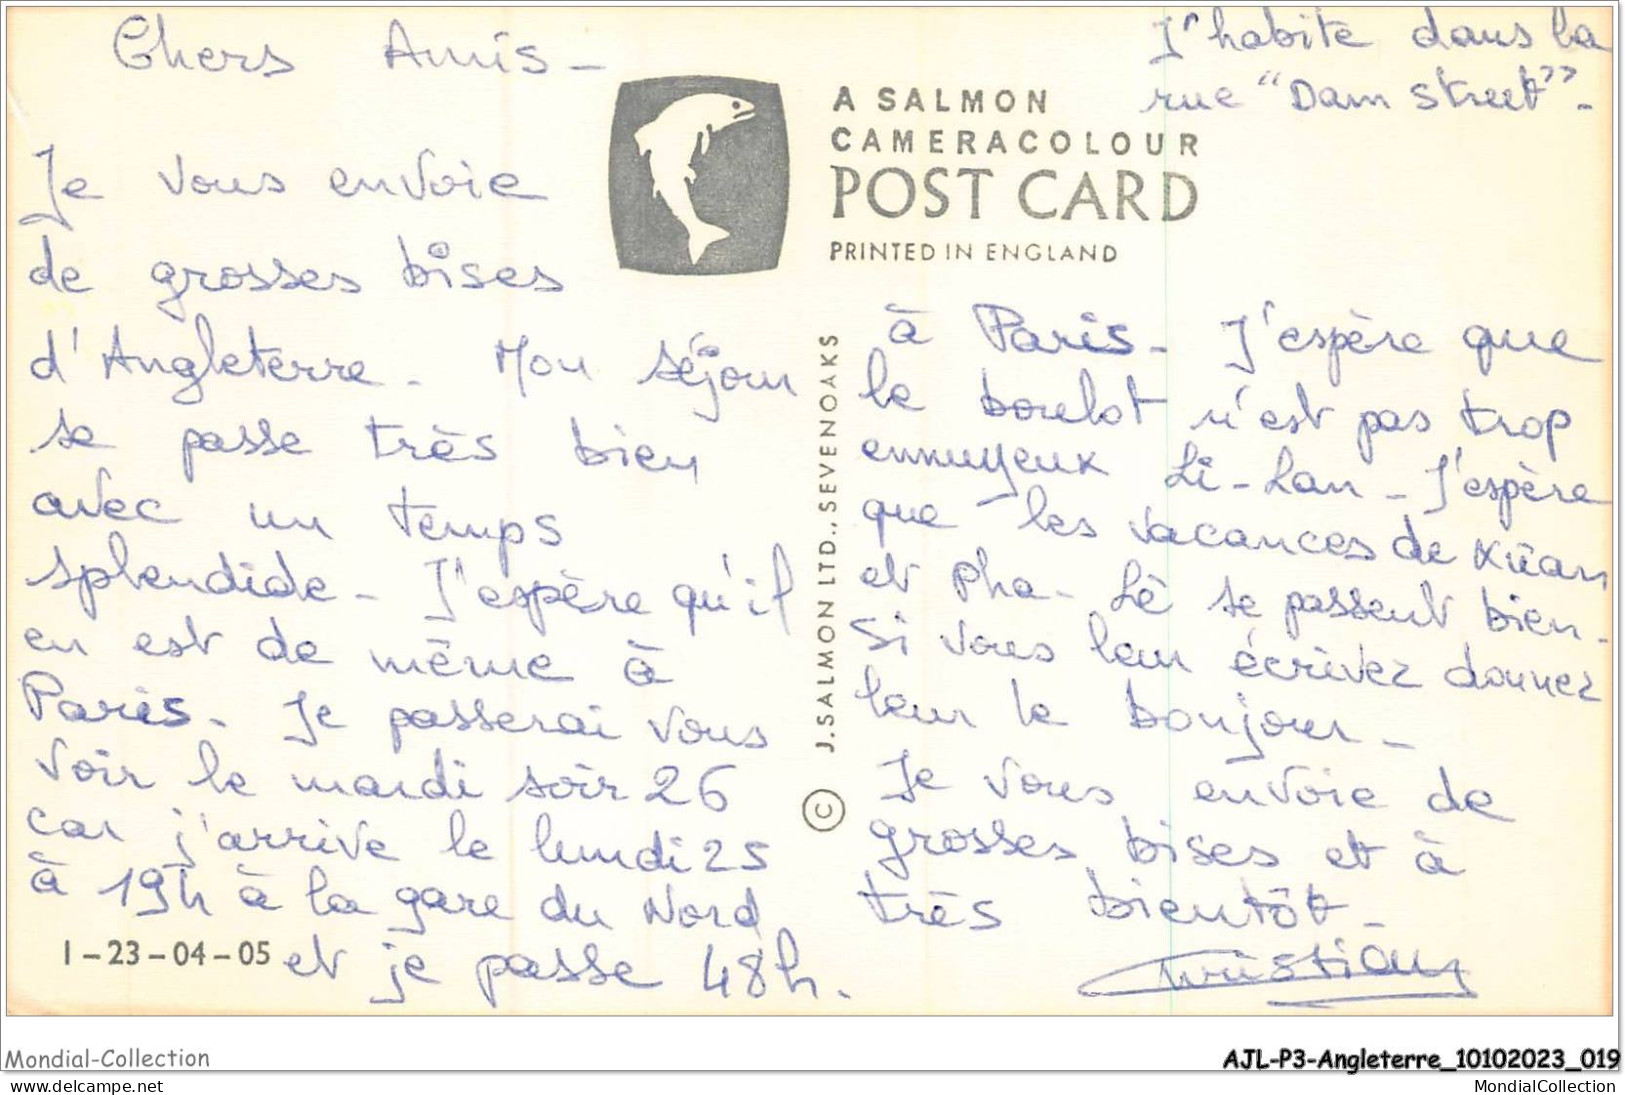 Chers Amis -
J'habite dans la
rue "Dam Street" -
A SALMON
CAMERACOLOUR
POST CARD
PRINTED IN ENGLAND
Je vous envoie
de grosses bises
d'Angleterre - Mon séjour
se passe très bien
avec un temps
splendide - J'espère qu'il
en est de même à
Paris - Je passerai vous
voir le mardi soir 26
car j'arrive le lundi 25
à 19h à la gare du Nord
1-23-04-05 et je passe 48h.
J. SALMON LTD., SEVENOAKS ©
à Paris - J'espère que
le boulot n'est pas trop
ennuyeux Li-Lan - J'espère
que les vacances de Xuan
et Pha-Lê se passent bien -
Si vous leur écrivez donnez
leur le bonjour -
Je vous envoie de
grosses bises et à
très bientôt -
Christian
Mondial-Collection
AJL-P3-Angleterre_10102023_019
www.delcampe.net
MondialCollection